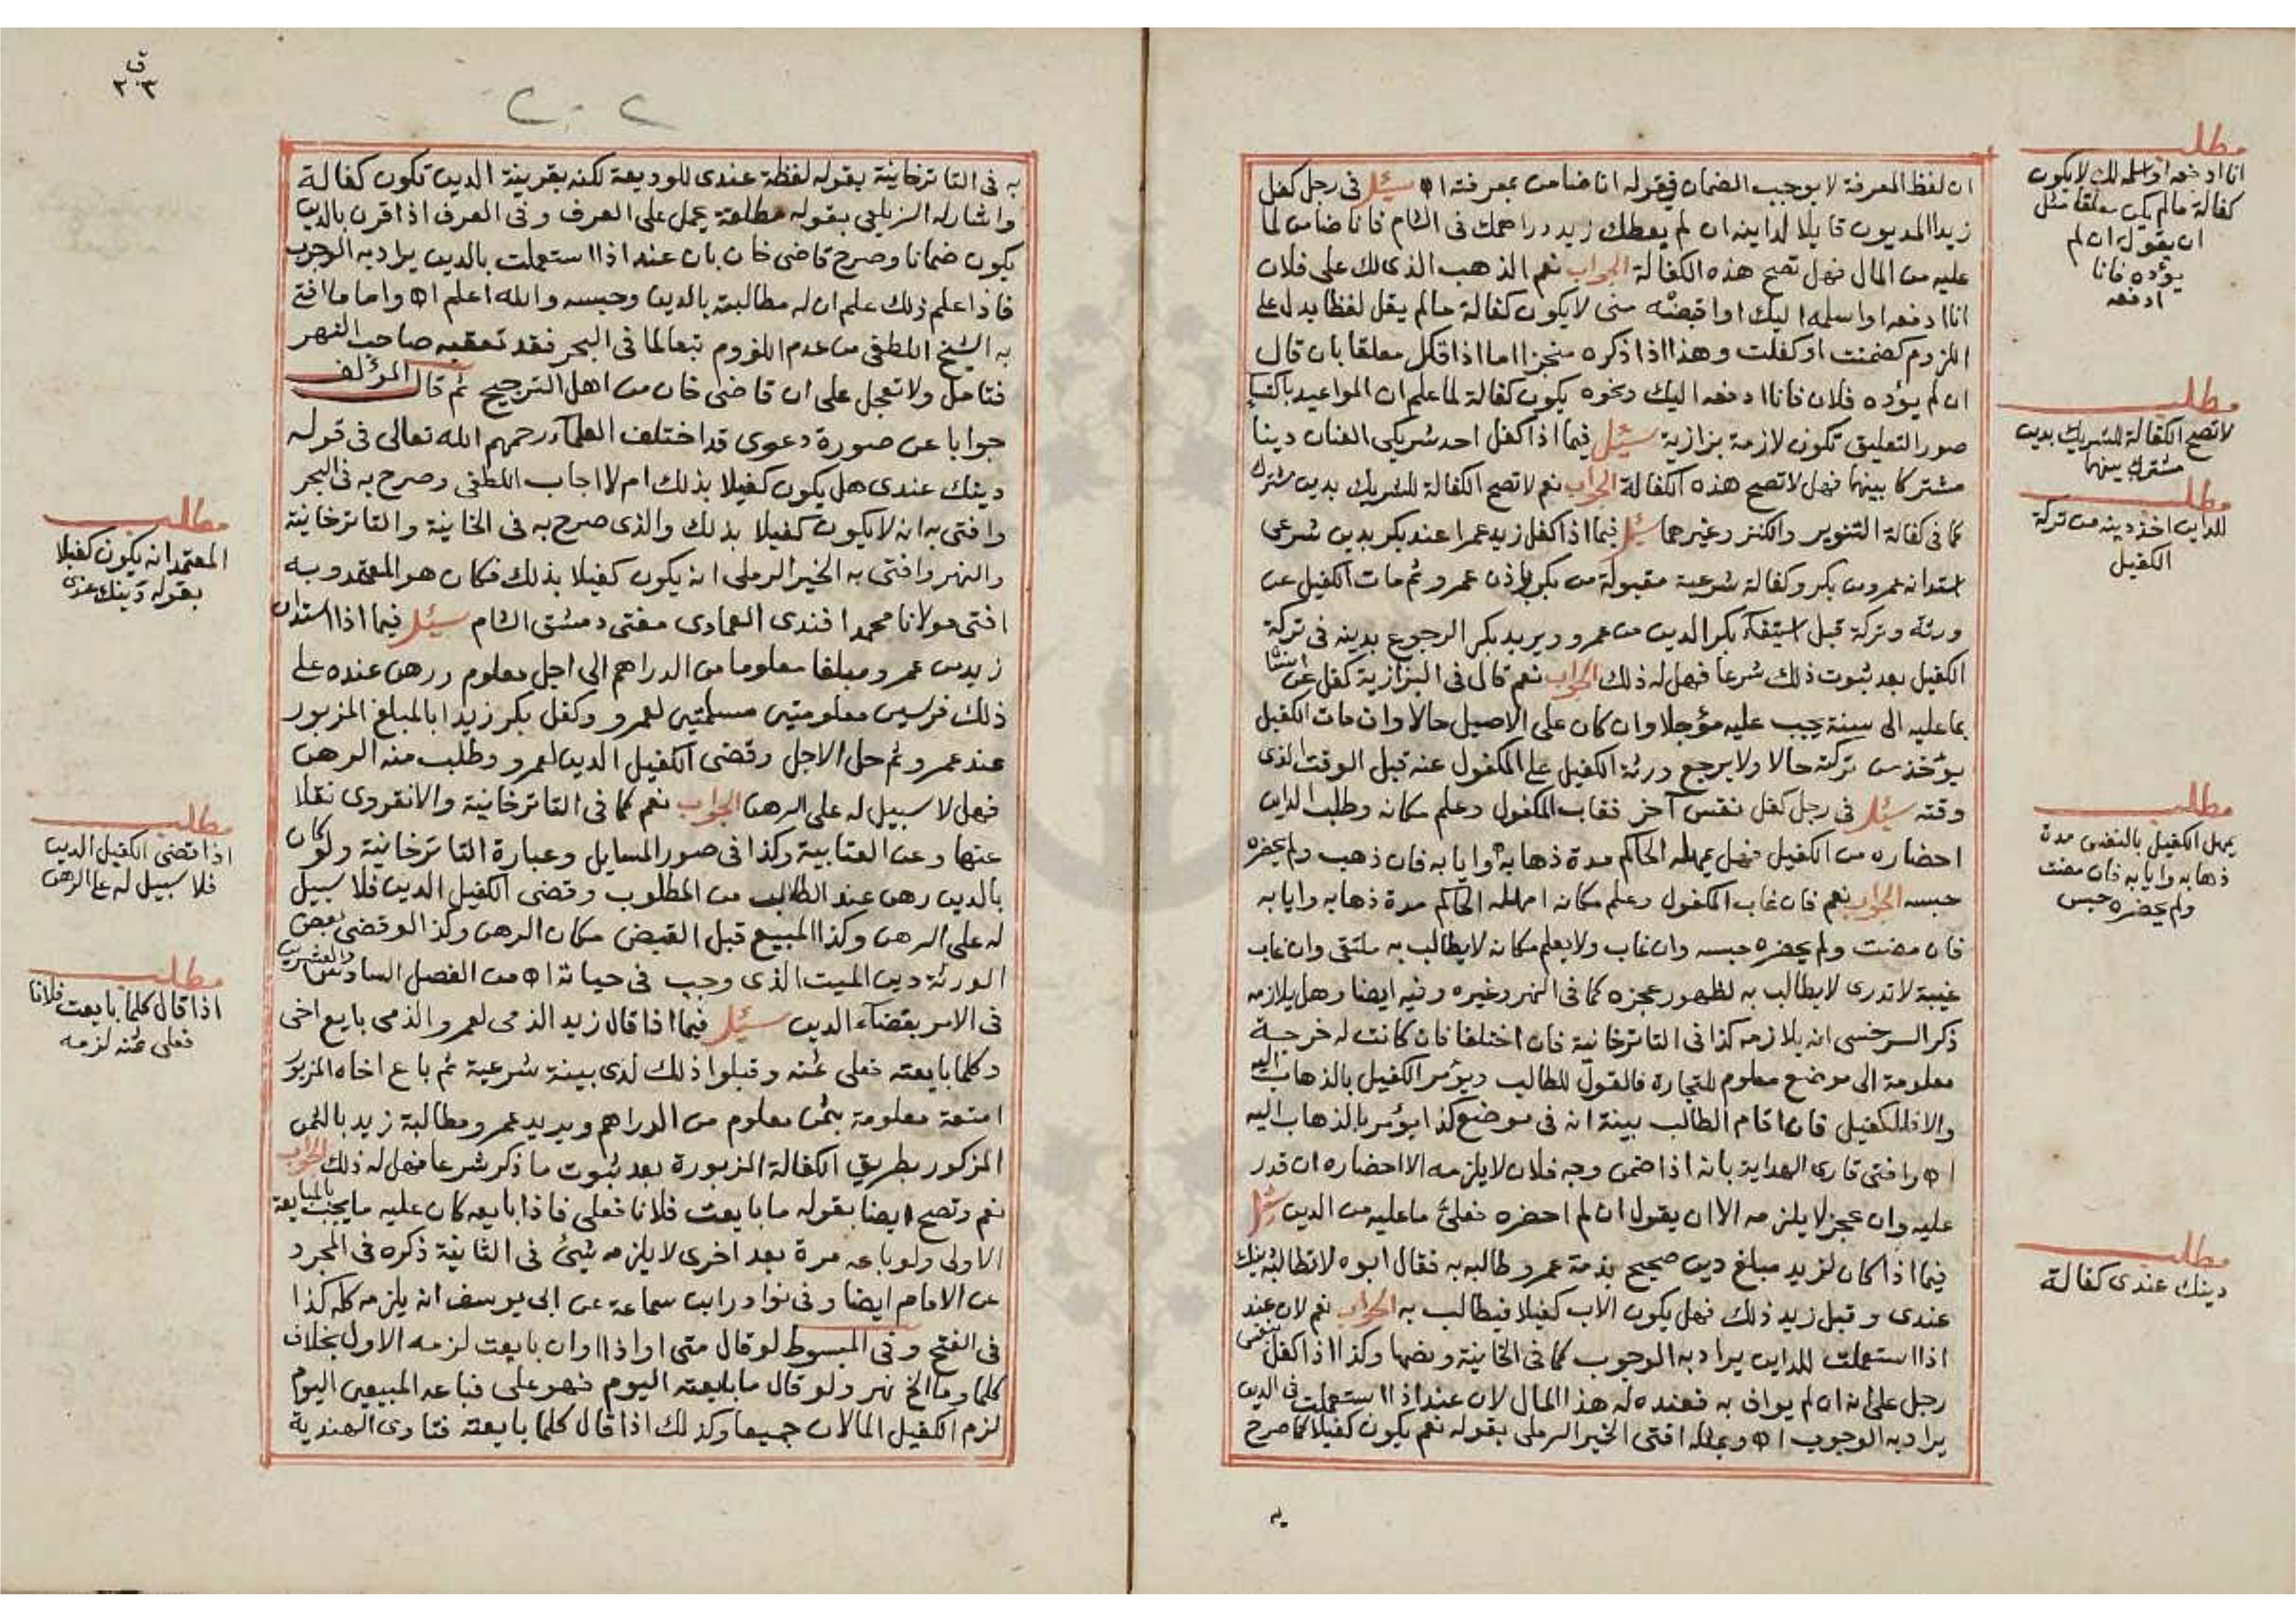 ان لفظ المعرفة لا يوجب الضمان فى قوله انا ضامن بمعرفته اه سئل فى رجل كفل
زيدا المديون قايلا لداينه ان لم يعطك زيد دراهمك فى الشام فانا ضامن لما
عليه من المال فهل تصح هذه الكفالة الجواب نعم الذهب الذى لك على فلان
انا ادفعه او اسلمه اليك او اقبضه منى لا يكون كفالة ما لم يقل لفظا يدل على
اللزوم كضمنت او كفلت وهذا اذا ذكره منجزا اما اذا ذكر معلقا بان قال
ان لم يؤده فلان فانا ادفعه اليك ونحوه يكون كفالة لما علم ان المواعيد باكتساء
صور التعليق تكون لازمة بزازية سئل فيما اذا كفل احد شريكى العنان دينا
مشتركا بينهما فهل لا تصح هذه الكفالة الجواب نعم لا تصح الكفالة للشريك بدين مشترك
كما فى كفالة التنوير والكنز وغيرهما سئل فيما اذا كفل زيد عمرا عند بكر بدين شرعى
استدانه عمرو من بكر وكفالة شرعية مقبولة من بكر باذن عمرو ثم مات الكفيل عن
ورثة وتركة قبل استيفآء بكر الدين من عمرو ويريد بكر الرجوع بدينه فى تركة
الكفيل بعد ثبوت ذلك شرعا فهل له ذلك الجواب نعم قال فى البزازية كفل عن انسان
بما عليه الى سنة يجب عليه مؤجلا وان كان على الاصيل حالا وان مات الكفيل
يؤخذ من تركته حالا ولا يرجع ورثة الكفيل على المكفول عنه قبل الوقت الذى
وقته سئل فى رجل كفل نفس آخر فغاب المكفول وعلم مكانه وطلب الداين
احضاره من الكفيل فهل يمهله الحاكم مدة ذهابه وايابه فان ذهب ولم يحضره
حبسه الجواب نعم فان غاب المكفول وعلم مكانه امهله الحاكم مدة ذهابه وايابه
فان مضت ولم يحضره حبسه وان غاب ولا يعلم مكانه لا يطالب به ملتقى وان غاب
غيبة لا تدرى لا يطالب به لظهور عجزه كما فى النهر وغيره وفيه ايضا وهل يلازمه
ذكر السرخسى انه يلازمه كذا فى التاترخانية فان اختلفا فان كانت له خرجة
معلومة الى موضع معلوم للتجارة فالقول للطالب ويؤمر الكفيل بالذهاب اليه
والا فللكفيل فان اقام الطالب بينة انه فى موضع كذا يؤمر بالذهاب اليه
اه وافتى قارى الهداية بانه اذا ضمن وجه فلان لا يلزمه الا احضاره ان قدر
عليه وان عجز لا يلزمه الا ان يقول ان لم احضره فعلى ما عليه من الدين سئل
فيما اذا كان لزيد مبلغ دين صحيح بذمة عمرو وطالبه به فقال ابوه لا تطالبه دينك
عندى وقبل زيد ذلك فهل يكون الاب كفيلا فيطالب به الجواب نعم لان عند
اذا استعملت للداين يراد به الوجوب كما فى الخانية ونصها وكذا اذا كفل بنفس
رجل على انه ان لم يواف به فعنده له هذا المال لان عند اذا استعملت فى الدين
يراد به الوجوب اه وبمثله افتى الخير الرملى بقوله نعم يكون كفيلا كما صرح
يه
مطلب
انا ادفعه او اسلمه لك لا يكون
كفالة ما لم يكن معلقا مثل
ان يقول ان لم
يؤده فانا
ادفعه
مطلب
لا تصح الكفالة للشريك بدين
مشترك بينهما
مطلب
للداين اخذ دينه من تركة
الكفيل
مطلب
يمهل الكفيل بالنفس مدة
ذهابه وايابه فان مضت
ولم يحضره حبس
مطلب
دينك عندى كفالة
ق
٢٠٣
به فى التاترخانية بقوله لفظة عندى للوديعة لكنه بقرينة الدين تكون كفالة
واشار له الزيلعى بقوله مطلقة يحمل على العرف وفى العرف اذا قرن بالدين
يكون ضمانا وصرح قاضى خان بان عند اذا استعملت بالدين يراد به الوجوب
فاذا علم ذلك علم ان له مطالبته بالدين وحبسه والله اعلم اه واما ما افتى
به الشيخ اللطفى من عدم اللزوم تبعا لما فى البحر فقد تعقبه صاحب النهر
فتامل ولا تعجل على ان قاضى خان من اهل الترجيح ثم قال المؤلف
جوابا عن صورة دعوى قد اختلف العلمآء رحمهم الله تعالى فى قوله
دينك عندى هل يكون كفيلا بذلك ام لا اجاب اللطفى وصرح به فى البحر
وافتى به انه لا يكون كفيلا بذلك والذى صرح به فى الخانية والتاترخانية
والنهر وافتى به الخير الرملى انه يكون كفيلا بذلك فكان هو المعتمد وبه
افتى مولانا محمد افندى العمادى مفتى دمشق الشام سئل فيما اذا استدان
زيد من عمرو مبلغا معلوما من الدراهم الى اجل معلوم ورهن عنده على
ذلك فرسين معلومتين مسلمتين لعمرو وكفل بكر زيدا بالمبلغ المزبور
عند عمرو ثم حل الاجل وقضى الكفيل الدين لعمرو وطلب منه الرهن
فهل لا سبيل له على الرهن الجواب نعم كما فى التاترخانية والانقروى نقلا
عنها وعن العتابية وكذا فى صور المسايل وعبارة التاترخانية ولو كان
بالدين رهن عند الطالب من المطلوب وقضى الكفيل الدين فلا سبيل
له على الرهن وكذا المبيع قبل القبض مكان الرهن وكذا لو قضى بعض
الورثة دين الميت الذى وجب فى حياته اه من الفصل السادس والعشرين
فى الامر بقضآء الدين سئل فيما اذا قال زيد الذمى لعمرو الذمى بايع اخى
وكلما بايعته فعلى ثمنه وقبلوا ذلك لدى بينة شرعية ثم باع اخاه المزبور
امتعة معلومة بثمن معلوم من الدراهم ويريد عمرو مطالبة زيد بالثمن
المزكور بطريق الكفالة المزبورة بعد ثبوت ما ذكر شرعا فهل له ذلك الجواب
نعم وتصح ايضا بقوله ما بايعت فلانا فعلى فاذا بايعه كان عليه ما يجب بالمبايعة
الاولى ولو باعه مرة بعد اخرى لا يلزمه شيئ فى الثانية ذكره فى المجرد
عن الامام ايضا وفى نوادر ابن سماعة عن ابى يوسف انه يلزمه كله كذا
فى الفتح وفى المبسوط لو قال متى او اذا او ان بايعت لزمه الاول بخلاف
كلما وما الخ نهر ولو قال ما بايعته اليوم فهو على فباعه المبيعين اليوم
لزم الكفيل المالان جميعا وكذلك اذا قال كلما بايعته فتاوى الهندية
مطلب
المعتمد انه يكون كفيلا
بقوله دينك عندى
مطلب
اذا قضى الكفيل الدين
فلا سبيل له على الرهن
مطلب
اذا قال كلما بايعت فلانا
فعلى ثمنه لزمه